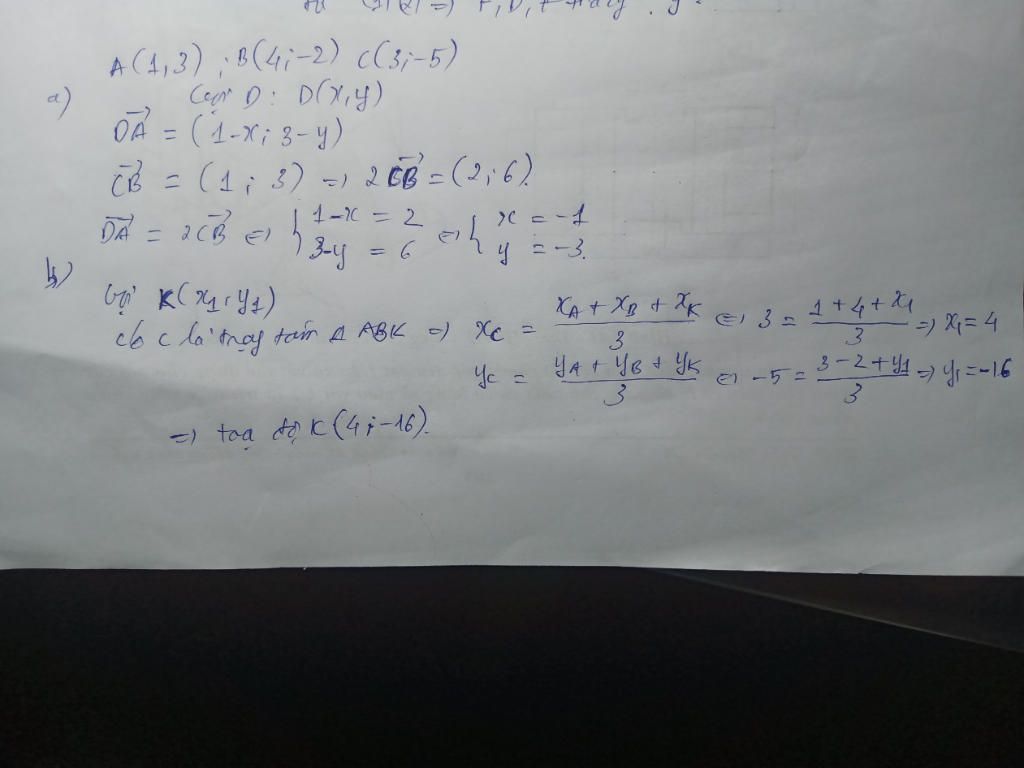 (1)(2) =>
A(1,3) ; B(4;-2) C(3;-5)
a) Gọi D: D(x,y)
DA→ = (1-x; 3-y)
CB→ = (1; 3) => 2CB→ = (2;6).
DA→ = 2CB→ <=> { 1-x = 2 <=> { x = -1
3-y = 6 y = -3.
b)
Gọi K(x1,y1)
C là trọng tâm Δ ABK => xC = (xA + xB + xK)/3 <=> 3 = (1+4+x1)/3 => x1 = 4
yC = (yA + yB + yK)/3 <=> -5 = (3-2+y1)/3 => y1 = -16
=> toạ độ K(4;-16).